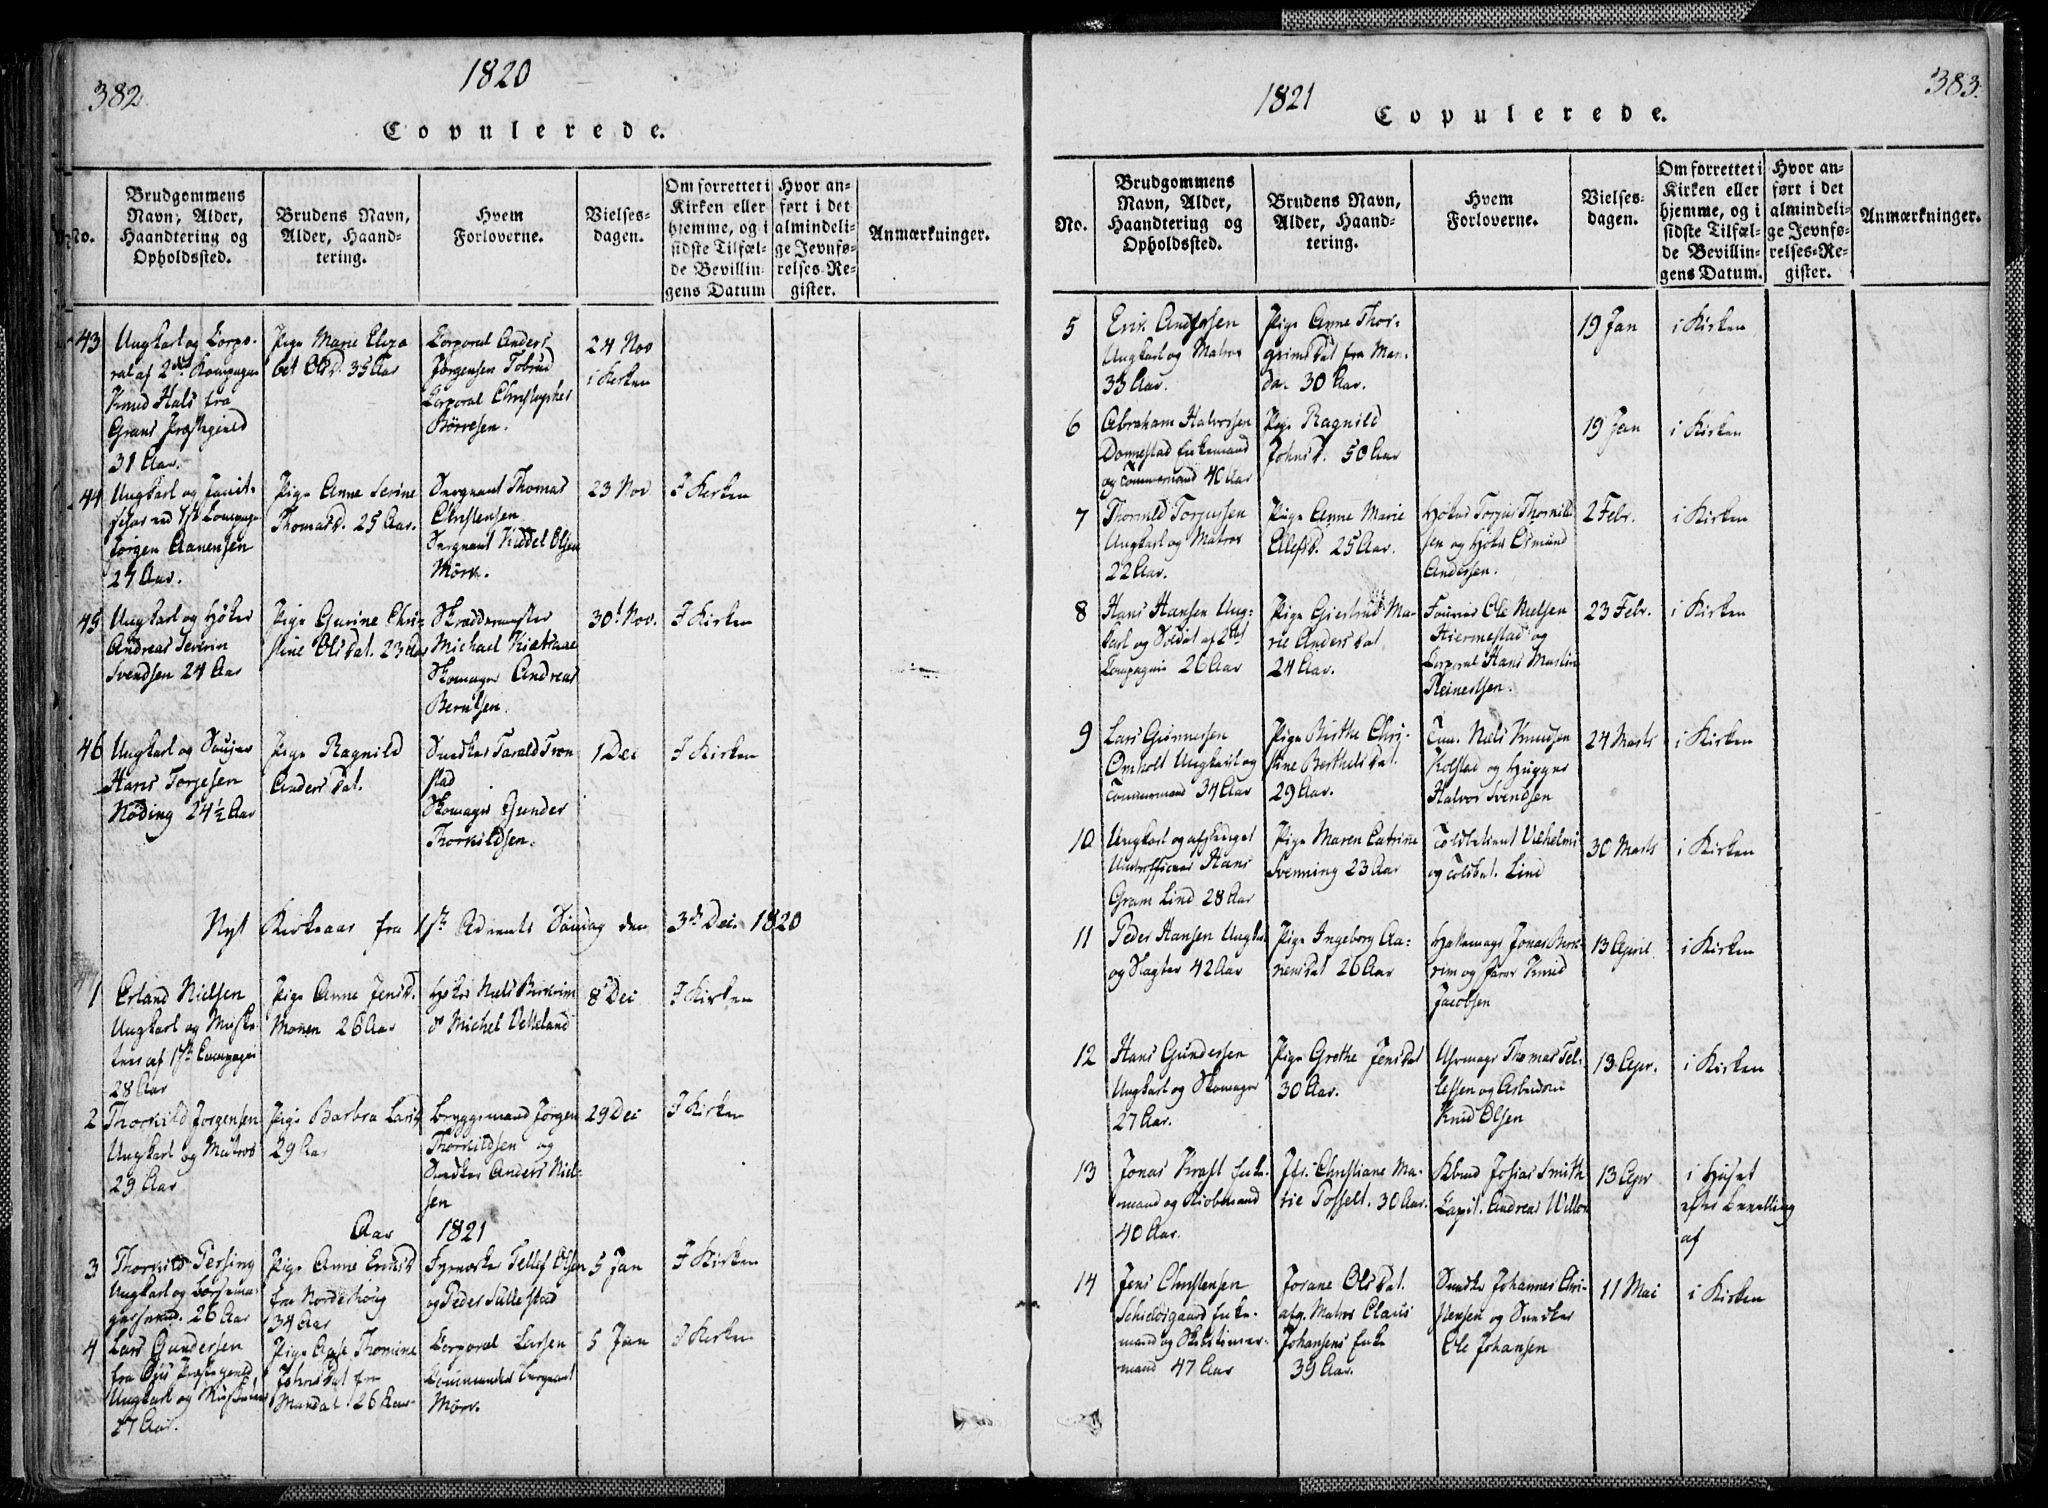 382
1820
Copulerede.
No.
Brudgommens
Navn, Alder,
Haandtering og
Opholdssted.
Brudens Navn,
Alder, Haand-
tering.
Hvem
Forloverne.
Vielses-
dagen.
Om forrettet i
Kirken eller
hjemme, og i
sidste Tilfæl-
de Bevillin-
gens Datum
Hvor an-
ført i det
almindeli-
ge Jevnfø-
relses-Re-
gister.
Anmærkninger.
43
Ungkarl og Corpo-
ral af 2det Kompagni
Knud Hals fra
Grans Præstegield
31 Aar.
Pige Marie Eliza
bet Olsd. 35 Aar
Corporal Anders
Jørgensen Tobrud
Corporal Christopher
Børresen.
24 Nov
i Kirken
44
Ungkarl og
ved 1ste Compagni
Jørgen Aanensen
27 Aar.
Pige Anne Serine
Thomasd. 25 Aar.
Sergeant Thomas
Christensen
Sergeant Kiddel Olsen
Mørk.
23 Nov
I Kirken
45
Ungkarl og Høker
Andreas Severin
Svendsen 24 Aar
Pige Gurine Chri-
stine Olsdat. 23 Aar
Skræddermester
Michael
Skomager Andreas
Berntsen.
30t Nov.
I Kirken
46
Ungkarl og
Hans Torjesen
Nøding 24½ Aar
Pige Ragnild
Andersdat.
Snedker Tarald Tron
stad
Skomager Gunder
Thorkildsen.
1 Dec
I Kirken
Nyt Kirkeaar fra 1ste Advents Søndag den 3de Dec. 1820
1
Erland Nielsen
Ungkarl og Muske-
teer af 1ste Compagni
28 Aar
Pige Anne Jensd.
Monen 26 Aar
Høker Niels Birkrim
& Michel Vetteland
8 Dec
I Kirken
2
Thorkild Jørgensen
Ungkarl og Matros
29 Aar
Pige Barbra Larsd
29 Aar
Bryggemand Jørgen
Thorkildsen og
Snedker Anders Niel-
sen
29 Dec
I Kirken
Aar 1821
3
Thorkild Tersing
Ungkarl og
26 Aar
Pige Anne Ericsd
fra Norderhoug
34 Aar
Tellef Olsen
og Peder Tullestad
5 Jan
I Kirken
4
Lars Gundersen
fra Præstegield
Ungkarl og Musketeer
27 Aar.
Pige Aase Thomine
Johnsdat fra
Mandal 26 Aar
Corporal Larsen
Commandeer Sergeant
Mørk.
5 Jan
I Kirken
383.
1821
Copulerede.
No.
Brudgommens
Navn, Alder,
Haandtering og
Opholdssted.
Brudens Navn,
Alder, Haand-
tering.
Hvem
Forloverne.
Vielses-
dagen.
Om forrettet i
Kirken eller
hjemme, og i
sidste Tilfæl-
de Bevillin-
gens Datum.
Hvor an-
ført i det
almindeli-
ge Jevnfø-
relses-Re-
gister.
Anmærkninger.
5
Eric Andersen
Ungkarl og Matros
33 Aar.
Pige Anne Thor-
grimsdat fra Man-
dal. 30 Aar.
19 Jan
i Kirken
6
Abraham Halvorsen
Donnestad Enkemand
og Tømmermand 40 Aar
Pige Ragnild
Johnsd. 50 Aar
19 Jan
i Kirken
7
Thorkild Torjussen
Ungkarl og Matros
22 Aar.
Pige Anne Marie
Ellefsd. 25 Aar.
Høker Torjus Thorkild
sen og Høker Osmund
Andersen.
2 Febr.
i Kirken
8
Hans Hansen Ung-
karl og Soldat af 2det
Compagnie 26 Aar
Pige Giertrud Ma-
rie Andersdat
24 Aar.
Fourer Ole Nielsen
Hiermestad og
Corporal Hans Martin
Reinertsen.
23 Febr.
i Kirken
9
Lars Gunnersen
Omholt Ungkarl og
Tømmermand 34 Aar
Pige Birthe Chri-
stine Berthelsdat.
29 Aar.
Tøm. Niels Knudsen
Kolstad og Hugger
Halvor Svendsen
24 Marts
i Kirken
10
Ungkarl og afskediget
Underofficeer Hans
Gram Lind 28 Aar
Pige Maren Catrine
Svenning 23 Aar
Toldbetient Vilhelmi
og Toldbet. Lind
30 Marts
i Kirken
11
Peder Hansen Ungkarl
og Slagter 42 Aar
Pige Ingeborg Aa-
nensdat 26 Aar
Jonas Birk-
rim og Knud
Jacobsen
13 April
i Kirken
12
Hans Gundersen
Ungkarl og Skomager
27 Aar.
Pige Grethe Jensdat
30 Aar.
Uhrmager Thomas Tel-
lefsen og Arbeidsm
Knud Olsen
13 Apr.
i Kirken
13
Jonas Kraft Enke-
mand og Kiøbmand
40 Aar.
Jfr. Christiane Ma-
rie Posselt. 30 Aar.
Kbmd Josias Smith
Capit. Andreas Willon
13 Apr
i Huset
efter Bevilling
af
14
Jens Christensen
Schieldsgaard Enke-
mand og Skibstimmer-
mand 47 Aar
Josane Olsdat.
afg. Matros Claus
Johansens Enke
39 Aar.
Snedker Johannes Chri-
stensen og Snedker
Ole Johansen
11 Mai
i Kirken